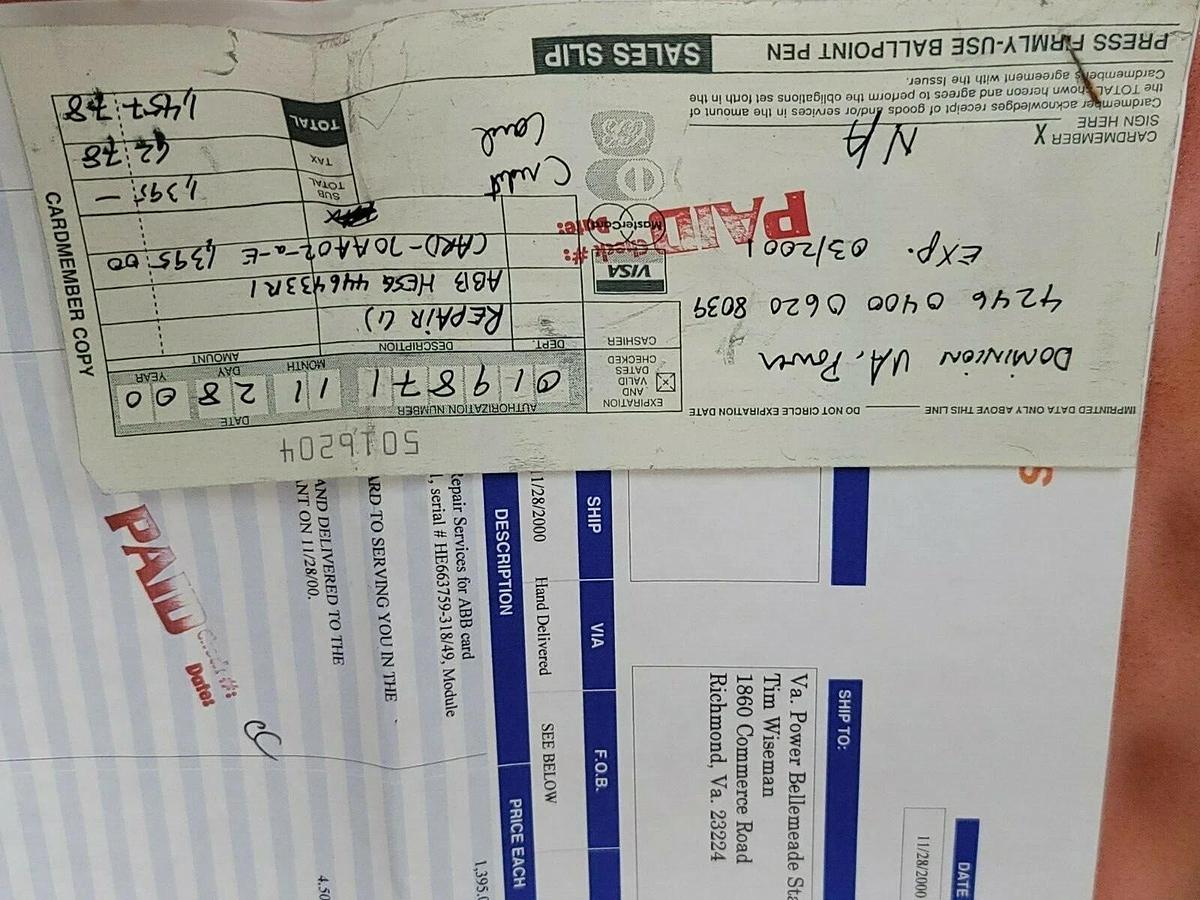 5016204
IMPRINTED DATA ONLY ABOVE THIS LINE DO NOT CIRCLE EXPIRATION DATE
DOMINION VA. Power
4246 0400 0620 8039
EXP. 03/2001
EXPIRATION
AND
VALID
DATES
CHECKED
AUTHORIZATION NUMBER
DATE
019871
11 28 00
MONTH DAY YEAR
CASHIER
DEPT.
DESCRIPTION
AMOUNT
REPAIR (1)
ABB HESG 446433R1
CARD-70AA02-a-E 1,395 00
VISA
MasterCard
PAID
Check #:
Date:
Credit
Card
SUB
TOTAL
1,395 —
TAX
62 78
TOTAL
1,457 78
N/A
CARDMEMBER
SIGN HERE X
Cardmember acknowledges receipt of goods and/or services in the amount of
the TOTAL shown hereon and agrees to perform the obligations set forth in the
Cardmember's agreement with the Issuer.
PRESS FIRMLY-USE BALLPOINT PEN
SALES SLIP
CARDMEMBER COPY
S
DATE
11/28/2000
SHIP TO:
Va. Power Bellemeade Sta
Tim Wiseman
1860 Commerce Road
Richmond, Va. 23224
SHIP VIA F.O.B.
11/28/2000 Hand Delivered SEE BELOW
DESCRIPTION PRICE EACH
Repair Services for ABB card 1,395.0
, serial # HE663759-318/49, Module
ARD TO SERVING YOU IN THE
AND DELIVERED TO THE 4.50
NT ON 11/28/00.
PAID
Check #:
Date:
CC